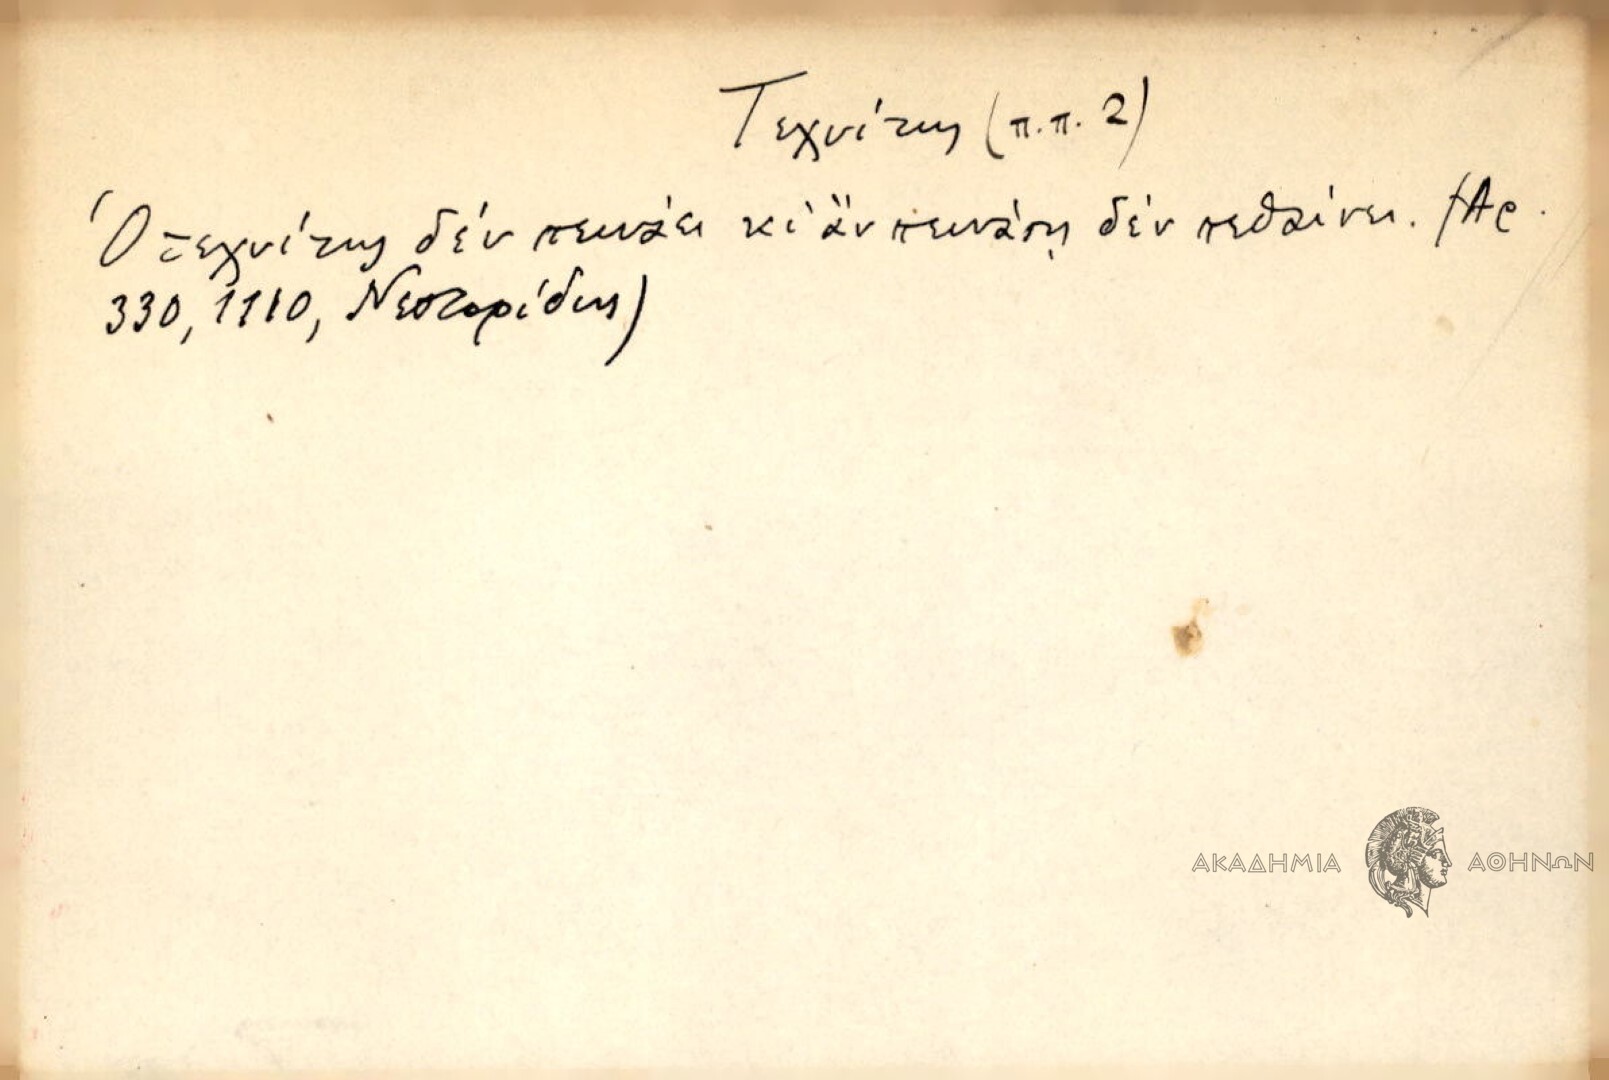 Τεχνίτης (π.π. 2)
Ὁ τεχνίτης δέν πεινάει κι' ἄν πεινάσῃ δέν πεθαίνει. (Αρ.
330, 1110, Νεστορίδης)
ΑΚΑΔΗΜΙΑ ΑΘΗΝΩΝ